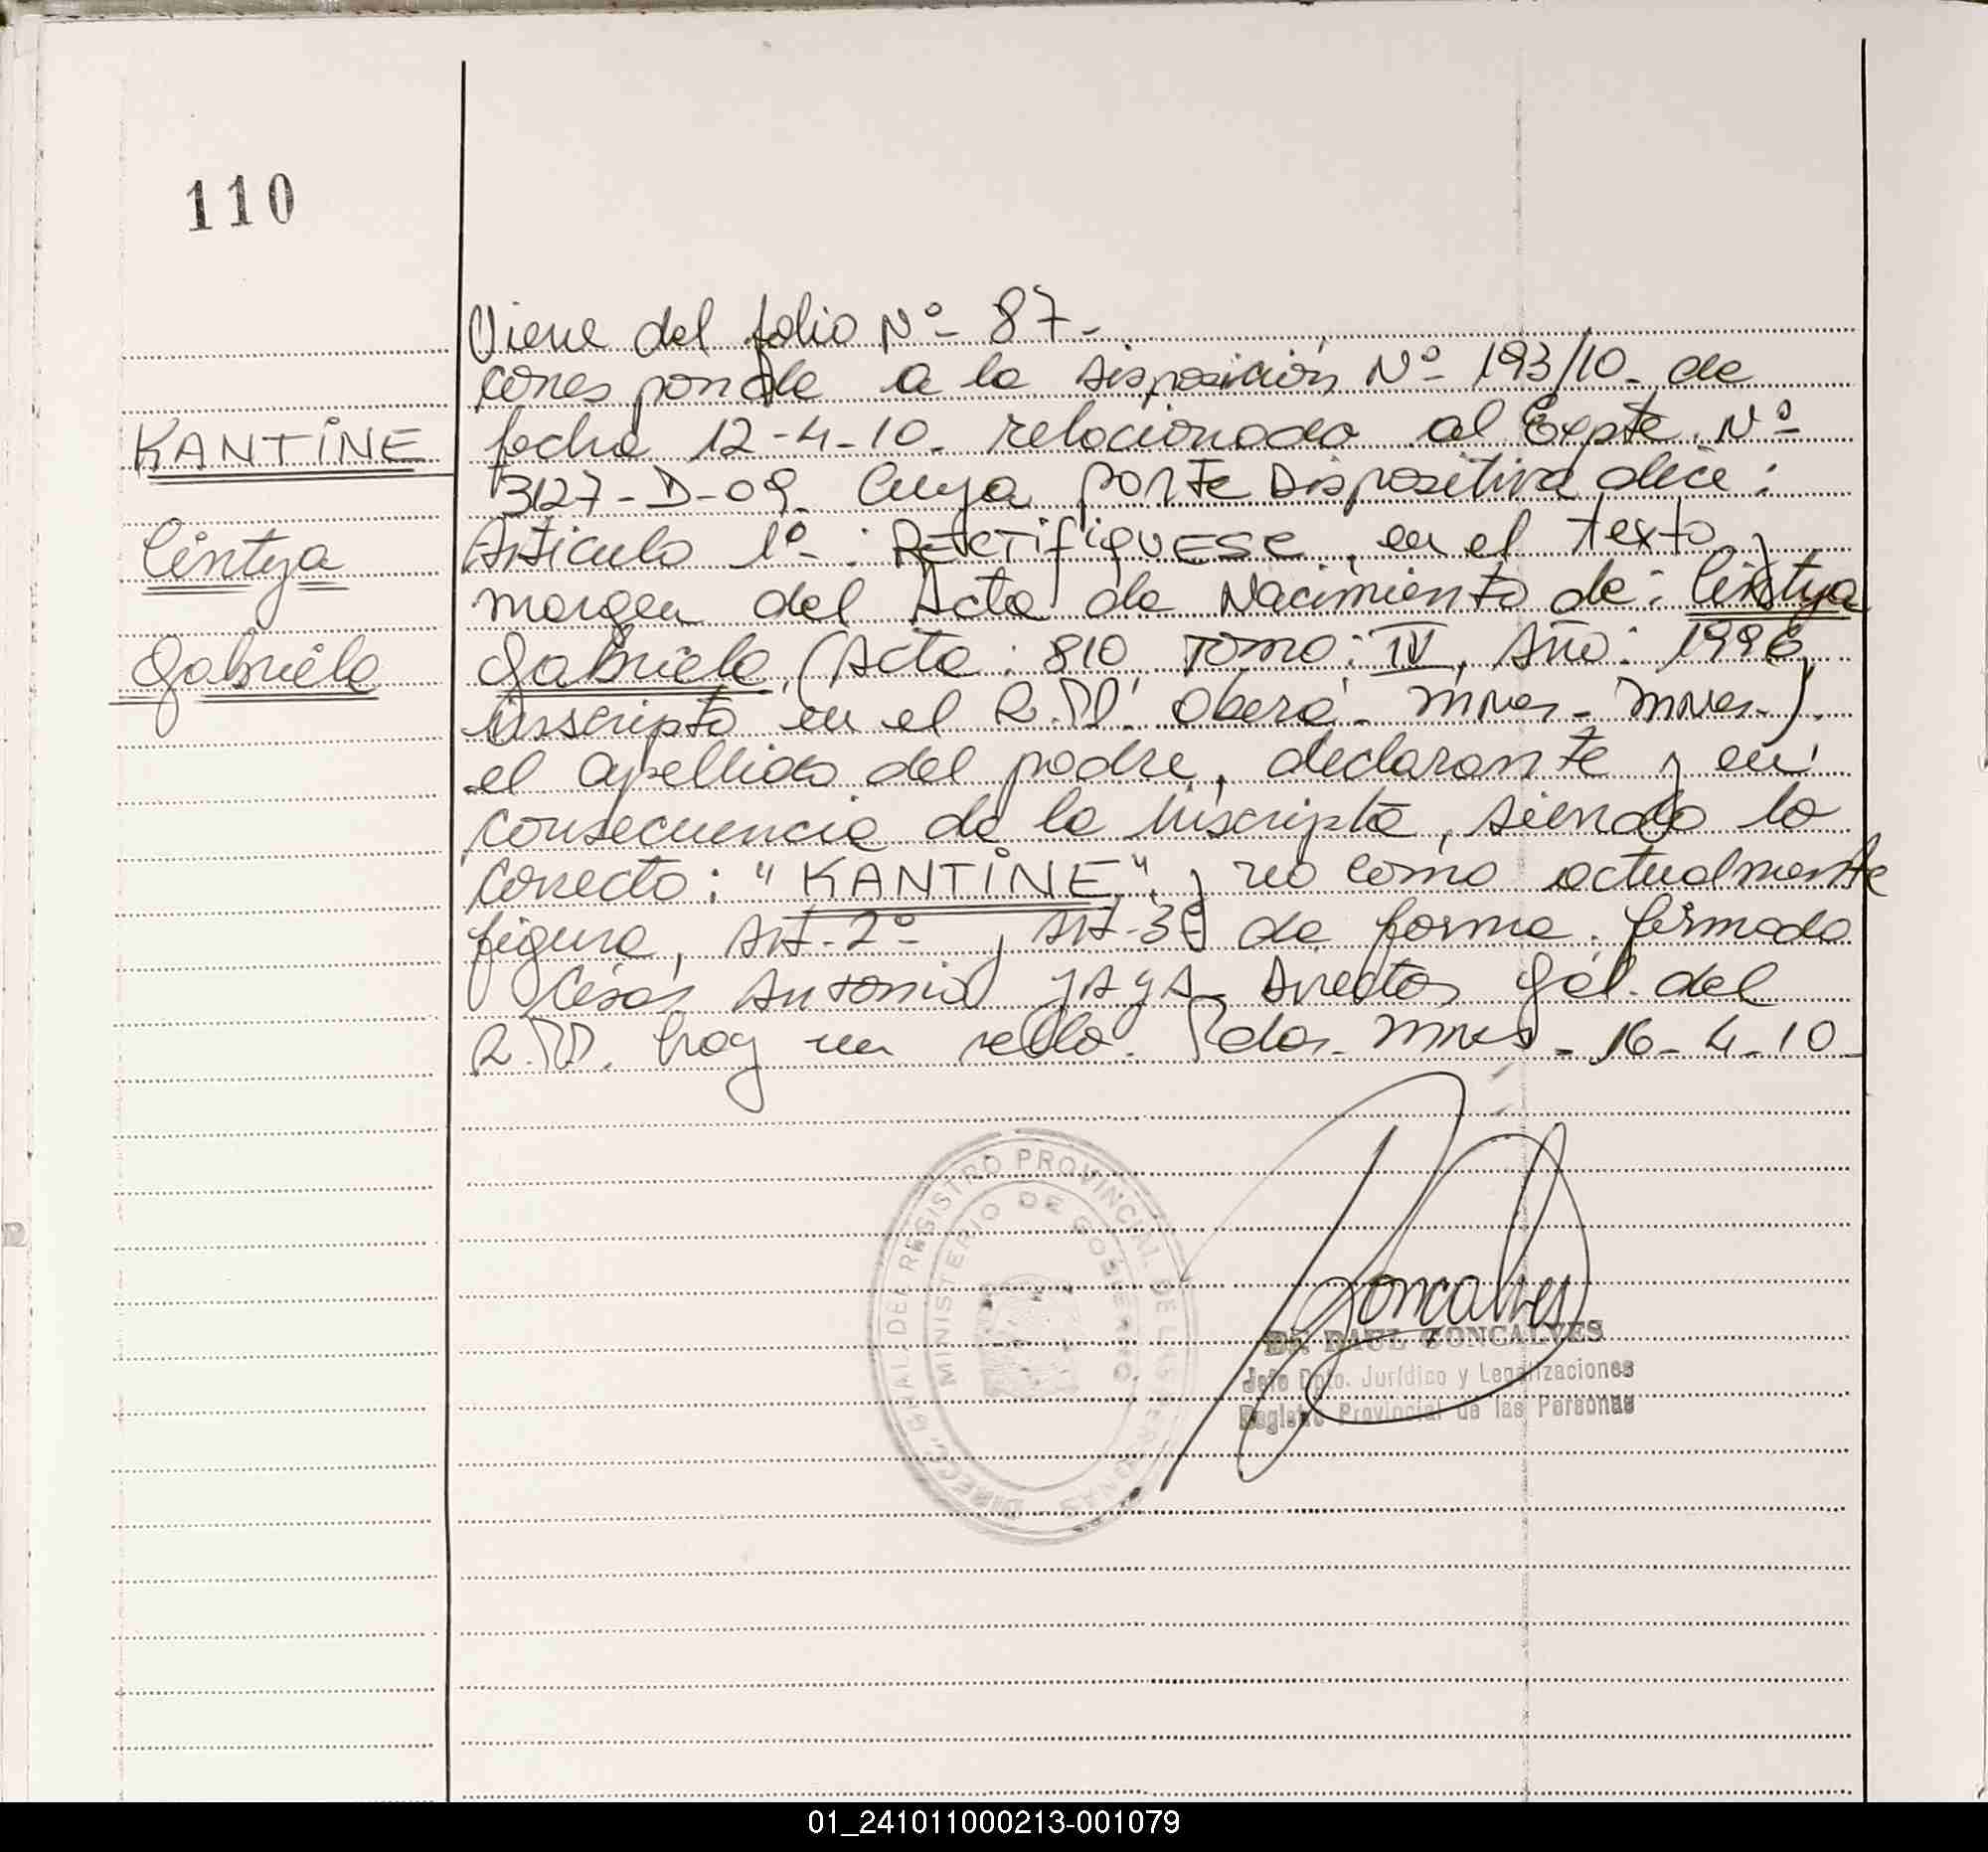 110
KANTINE
Cintya
Gabriela
Viene del folio Nº 87-
corresponde a la Disposición Nº 193/10- de
fecha 12-4-10. relacionada al Expte. Nº
3127-D-09. Cuya parte Dispositiva dice:
Articulo 1º-: RECTIFIQUESE, en el texto y
margen del Acta de Nacimiento de: Cintya
Gabriela, (Acta: 810 Tomo: IV, Año: 1996,
inscripta en el R.PP. Oberá- Mnes-).
el apellido del padre, declarante y en
consecuencia de la inscripta, siendo lo
correcto: "KANTINE" y no como actualmente
figura, Art-2º y Art-3º de forma. firmado
César Antonio JAYA- Director Gál. del
R.PP. hay un sello. Pdas. Mnes- 16-4-10-
DIRECC. GRAL. DEL REGISTRO PROVINCIAL DE LAS PERSONAS
MINISTERIO DE GOBIERNO
Goncalves
Dr. RAUL GONCALVES
Jefe Dpto. Jurídico y Legalizaciones
Registro Provincial de las Personas
01_241011000213-001079